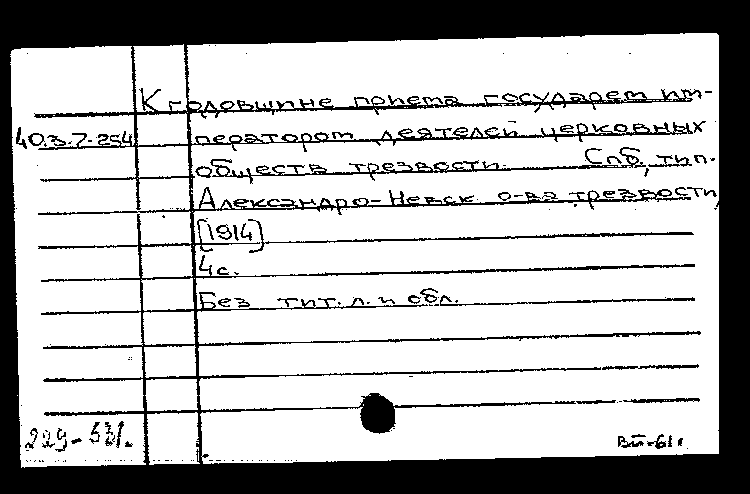 К годовщине приема государем им-
40.3.7-254 ператором деятелей церковных
обществ трезвости. Спб, тип.
Александро-Невск. о-ва трезвости,
[1914]
4с.
Без тит. л. и обл.
229-531.